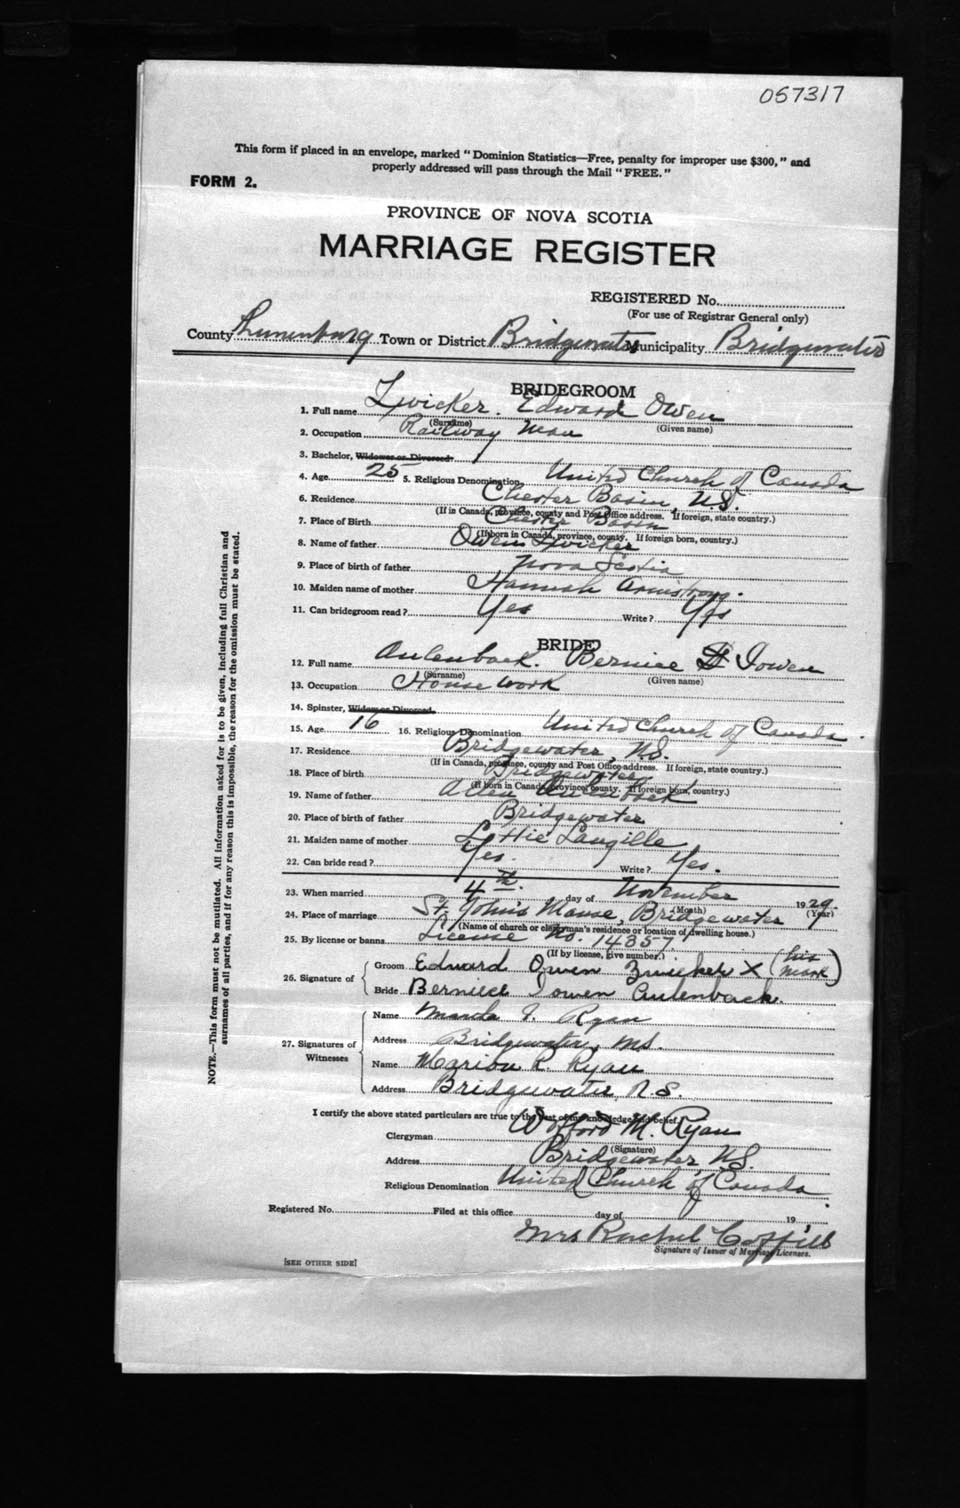 057317
This form if placed in an envelope, marked "Dominion Statistics—Free, penalty for improper use $300," and
properly addressed will pass through the Mail "FREE."
FORM 2.
PROVINCE OF NOVA SCOTIA
MARRIAGE REGISTER
REGISTERED No.
(For use of Registrar General only)
County Lunenburg Town or District Bridgewater Municipality Bridgewater
BRIDEGROOM
1. Full name Zwicker. Edward Owen
(Surname) (Given name)
2. Occupation Railway Man
3. Bachelor, Widower or Divorced
4. Age 25 5. Religious Denomination United Church of Canada
6. Residence Chester Basin, N.S.
(If in Canada, province, county and Post Office address. If foreign, state country.)
7. Place of Birth Chester Basin
(If born in Canada, province, county. If foreign born, country.)
8. Name of father Owen Zwicker
9. Place of birth of father Nova Scotia
10. Maiden name of mother Hannah Armstrong.
11. Can bridegroom read? Yes Write? Yes
BRIDE
12. Full name Aulenback. Bernice Iowen
(Surname) (Given name)
13. Occupation House work
14. Spinster, Widow or Divorced
15. Age 16 16. Religious Denomination United Church of Canada.
17. Residence Bridgewater, N.S.
(If in Canada, province, county and Post Office address. If foreign, state country.)
18. Place of birth Bridgewater
(If born in Canada, province, county. If foreign born, country.)
19. Name of father Aulenback
20. Place of birth of father Bridgewater
21. Maiden name of mother Lottie Langille
22. Can bride read? Yes. Write? Yes.
23. When married 4th. day of November 1929.
(Month) (Year)
24. Place of marriage St. John's Manse, Bridgewater
(Name of church or clergyman's residence or location of dwelling house.)
25. By license or banns License No. 14857.
(If by license, give number.)
26. Signature of
Groom Edward Owen Zwicker X (his mark)
Bride Berniece Iowen Aulenback.
27. Signatures of Witnesses
Name Ryan
Address Bridgewater, N.S.
Name Marion R. Ryan
Address Bridgewater N.S.
I certify the above stated particulars are true to the best of my knowledge and belief.
Clergyman M. Ryan
(Signature)
Address Bridgewater N.S.
Religious Denomination United Church of Canada
Registered No. Filed at this office day of 19
Mrs Rachel Coffill
Signature of Issuer of Marriage Licenses.
[SEE OTHER SIDE]
NOTE.—This form must not be mutilated. All information asked for is to be given, including full Christian and
surnames of all parties, and if for any reason this is impossible, the reason for the omission must be stated.